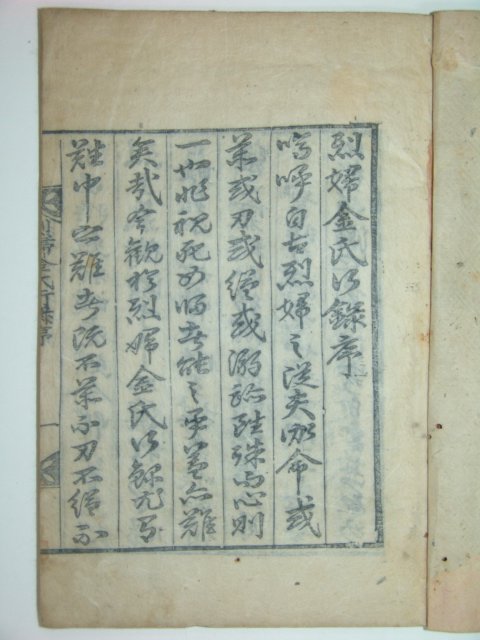 烈婦金氏行錄序
嗚呼自古烈婦之從夫命或
藥或刀或縊或溺跡雖殊而心則
一也非視死如歸者能之乎蓋亦難
矣哉今觀於烈婦金氏行錄尤爲
難中之難者旣不藥不刀不縊不